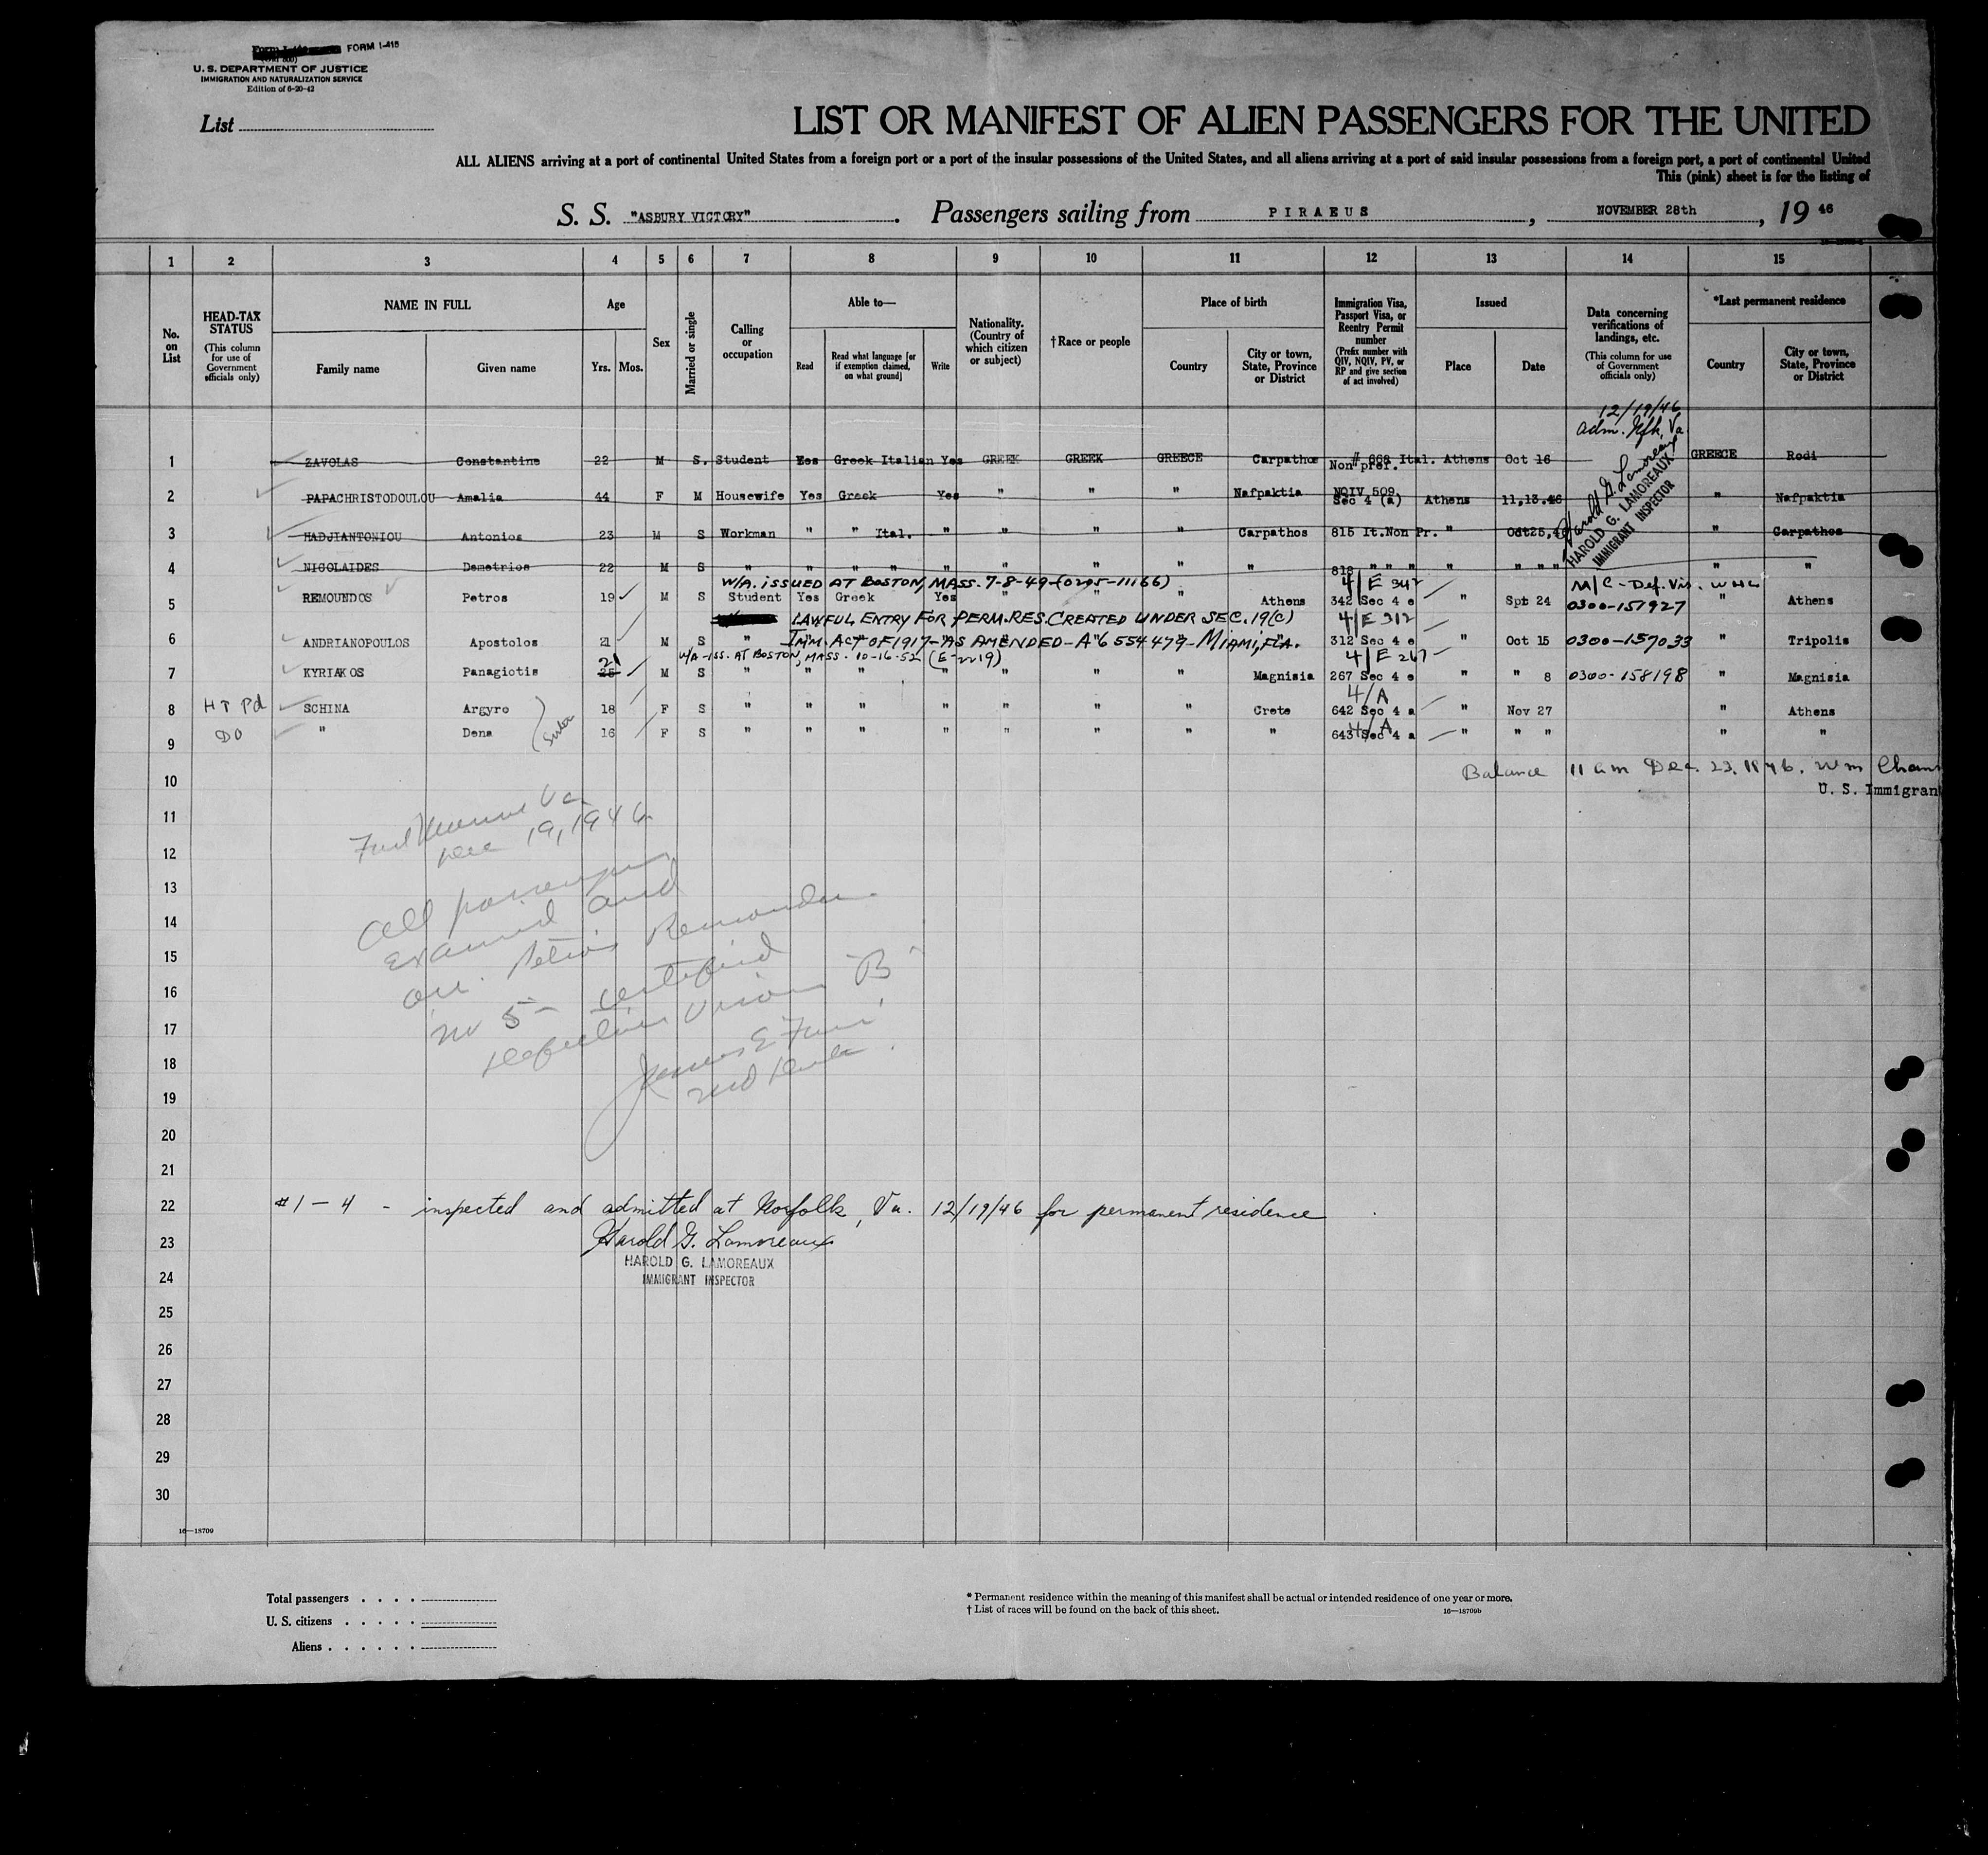 FORM I-415
U. S. DEPARTMENT OF JUSTICE
IMMIGRATION AND NATURALIZATION SERVICE
Edition of 6-20-42
List
LIST OR MANIFEST OF ALIEN PASSENGERS FOR THE UNITED
ALL ALIENS arriving at a port of continental United States from a foreign port or a port of the insular possessions of the United States, and all aliens arriving at a port of said insular possessions from a foreign port, a port of continental United
This (pink) sheet is for the listing of
S. S. "ASBURY VICTORY". Passengers sailing from PIRAEUS, NOVEMBER 28th, 19 46
1 2 3 4 5 6 7 8 9 10 11 12 13 14 15
No. on List
HEAD-TAX STATUS (This column for use of Government officials only)
NAME IN FULL Family name Given name
Age Yrs. Mos.
Sex
Married or single
Calling or occupation
Able to— Read Read what language [or if exemption claimed, on what ground] Write
Nationality. (Country of which citizen or subject)
†Race or people
Place of birth Country City or town, State, Province or District
Immigration Visa, Passport Visa, or Reentry Permit number (Prefix number with QIV, NQIV, PV, or RP and give section of act involved)
Issued Place Date
Data concerning verifications of landings, etc. (This column for use of Government officials only)
*Last permanent residence Country City or town, State, Province or District
12/19/46
Adm. Nfk, Va.
Harold G. Lamoreaux
HAROLD G. LAMOREAUX
IMMIGRANT INSPECTOR
1 ZAVOLAS Constantine 22 M S. Student Yes Greek Italian Yes GREEK GREEK GREECE Carpathos # 668 Ital. Non pref. Athens Oct 16 GREECE Rodi
2 PAPACHRISTODOULOU Amalia 44 F M Housewife Yes Greek Yes " " " Nafpaktia NQIV 509 Sec 4 (a) Athens 11,13.46 " Nafpaktia
3 HADJIANTONIOU Antonios 23 M S Workman " " Ital. " " " " Carpathos 815 It.Non Pr. " Oct25, " Carpathos
4 NICOLAIDES Demetrios 22 M S " " " " " " " " " 818 " " " " " " " " "
W/A. ISSUED AT BOSTON, MASS. 7-8-49-(0205-11166) 4/E 342 M/C - Def. Vis. WHL
5 REMOUNDOS Petros 19 M S Student Yes Greek Yes " " " Athens 342 Sec 4 e " Spt 24 0300-151927 " Athens
LAWFUL ENTRY FOR PERM.RES.CREATED UNDER SEC. 19(C) 4/E 312
6 ANDRIANOPOULOS Apostolos 21 M S " IMM. ACT OF 1917-AS AMENDED-A"6 554 479-MIAMI, FLA. 312 Sec 4 e " Oct 15 0300-157033 " Tripolis
W/A-ISS. AT BOSTON, MASS. 10-16-52 (E-2219) 4/E 267
7 KYRIAKOS Panagiotis 25 21 M S " " " " " " " Magnisia 267 Sec 4 e " " 8 0300-158198 " Magnisia
4/A
8 HT Pd SCHINA Argyro 18 F S " " " " " " " Crete 642 Sec 4 a " Nov 27 " Athens
4/A
9 DO " Dena Sister 16 F S " " " " " " " " 643 Sec 4 a " " " " "
10 Balance 11 am Dec. 23, 1946. Wm Cham
U. S. Immigran
11
12 Dec 19, 1946
13 All passengers
14 examined and
15 Petros Remoundos
16 No 5 - certified
17 Defective Vision "B"
18 James E
19
20
21
22 #1 - 4 - inspected and admitted at Norfolk, Va. 12/19/46 for permanent residence
23 Harold G. Lamoreaux
HAROLD G. LAMOREAUX
24 IMMIGRANT INSPECTOR
25
26
27
28
29
30
16—18709
Total passengers . . . .
U. S. citizens . . . . .
Aliens . . . . . .
* Permanent residence within the meaning of this manifest shall be actual or intended residence of one year or more.
† List of races will be found on the back of this sheet. 16—18709b